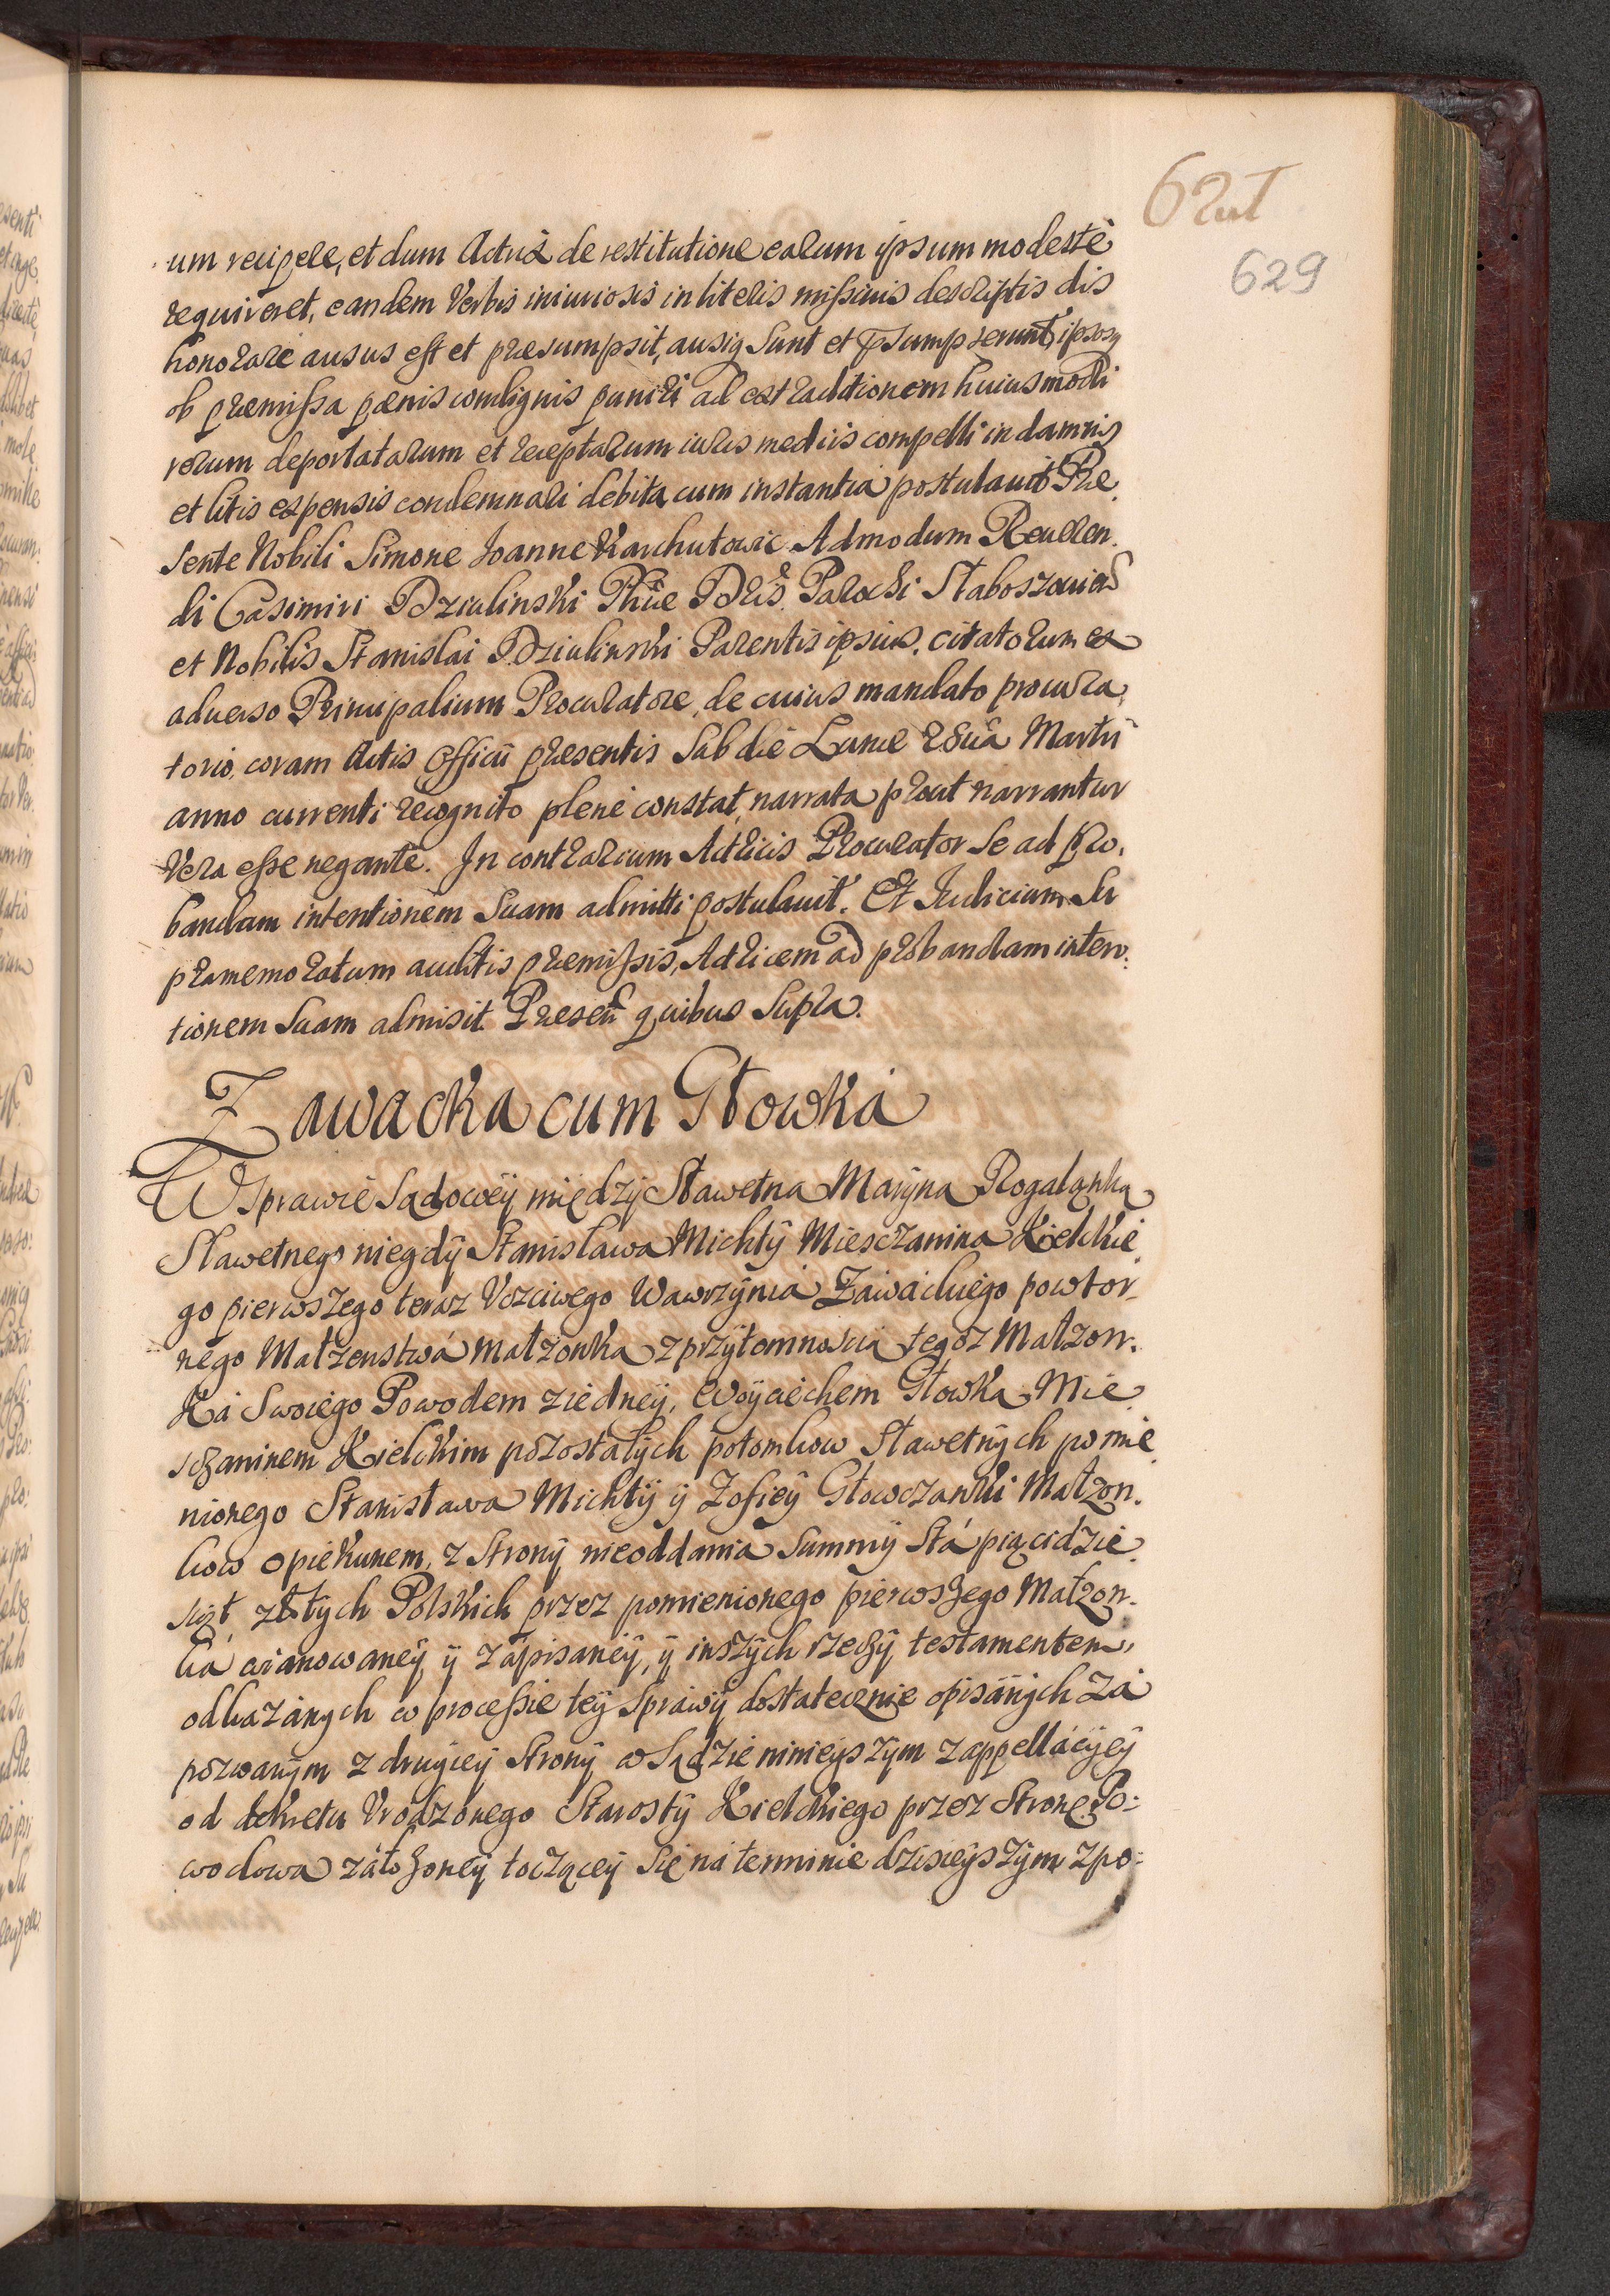 629
um recipere, et dum Actrix de restitutione earum ipsum modeste
requireret, eandem Verbis iniuriosis in literis missiuis descriptis dis
honorare ausus est et præsumpsit, ausiq sunt et præsumpserunt, ipsosq
ob præmissa pænis condignis puniri ad extraditionem huiusmodi
rerum deportatarum et receptarum iuris mediis compelli in damnis
et litis expensis condemnari debita cum instantia postulauit Præ
sente Nobili Simone Joanne Karchutowic Admodum Reueren
di Casimiri Dziulinski Parochi Staboszouien
et Nobilis Stanislai Dziulinski Parentis ipsius, citatorum ex
aduerso Principalium Procuratore, de cuius mandato procura
torio, coram Actis Officii præsentis Sub die Lunæ Martii
anno currenti recognito plene constat, narrata prout narrantur
Vera esse negante. In contrarium Actricis Procurator se ad pro.
bandam intentionem Suam admitti postulauit. Et Judicium Su
pramemoratum auditis præmissis, Actricem ad probandam inten:
tionem Suam admisit. Presen quibus Supra.
Zawacka cum Głowka
W sprawie Sądowey między Sławetna Maryna Rogalanka
Sławetnego niegdy Stanisława Michty Miesczanina Kielckie
go pierwszego teraz Vczciwego Wawrzynia Zawackiego powtor-
nego Małzenstwá małzonka z przytomnoscia tegoz Małzon:
ká Swoiego Powodem z iedney, Woyciechem Głowka Mie
sczaninem Kielckim pozostałych potomkow Sławetnych pomie
nionego Stanisława Michty y Zofiey Głowczanki Małzon.
kow opiekunem, z Strony nieoddania Summy Stá pięcidzie
siąt złotych Polskich przez pomienionego pierwszego Małzon-
ká wianowaney y zápisaney, y inszych rzeczy testamentem
odkazánych w processie tey Spráwy dostatecznie opisánych Zá
pozwanym z drugiey Strony w Sądzie ninieyszym z appelláciyey
od dekretu Vrodzonego Starosty Kielckiego przez Strone Po:
wodowa záłozoney toczącey się ná terminie dzisieyszym z po: